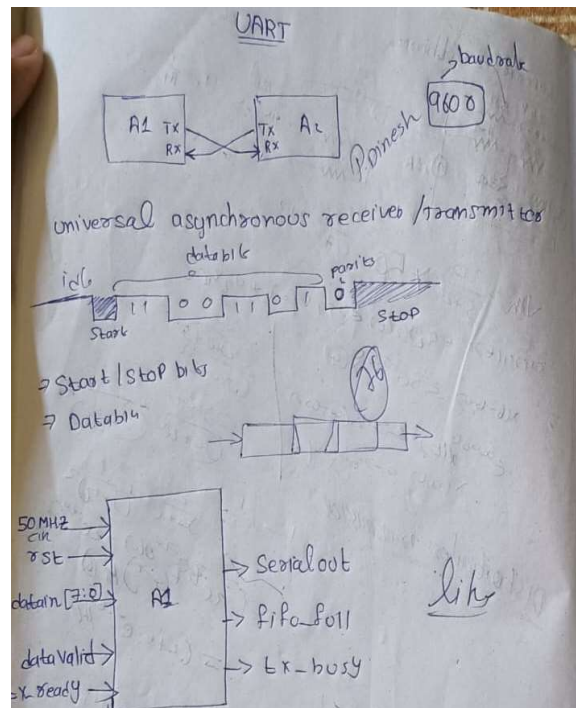 UART
baudrate
9600
A1 Tx
Rx
Tx A2
Rx
P.Dinesh
universal asynchronous receiver /transmittor
databits
idle
parity
1 1 0 0 1 1 0 1 0
Start
Stop
⇒ Start/Stop bits
⇒ Databits
50MHZ
clk
rst
datain [7:0]
data valid
A1
Serialout
fifo_full
tx_busy